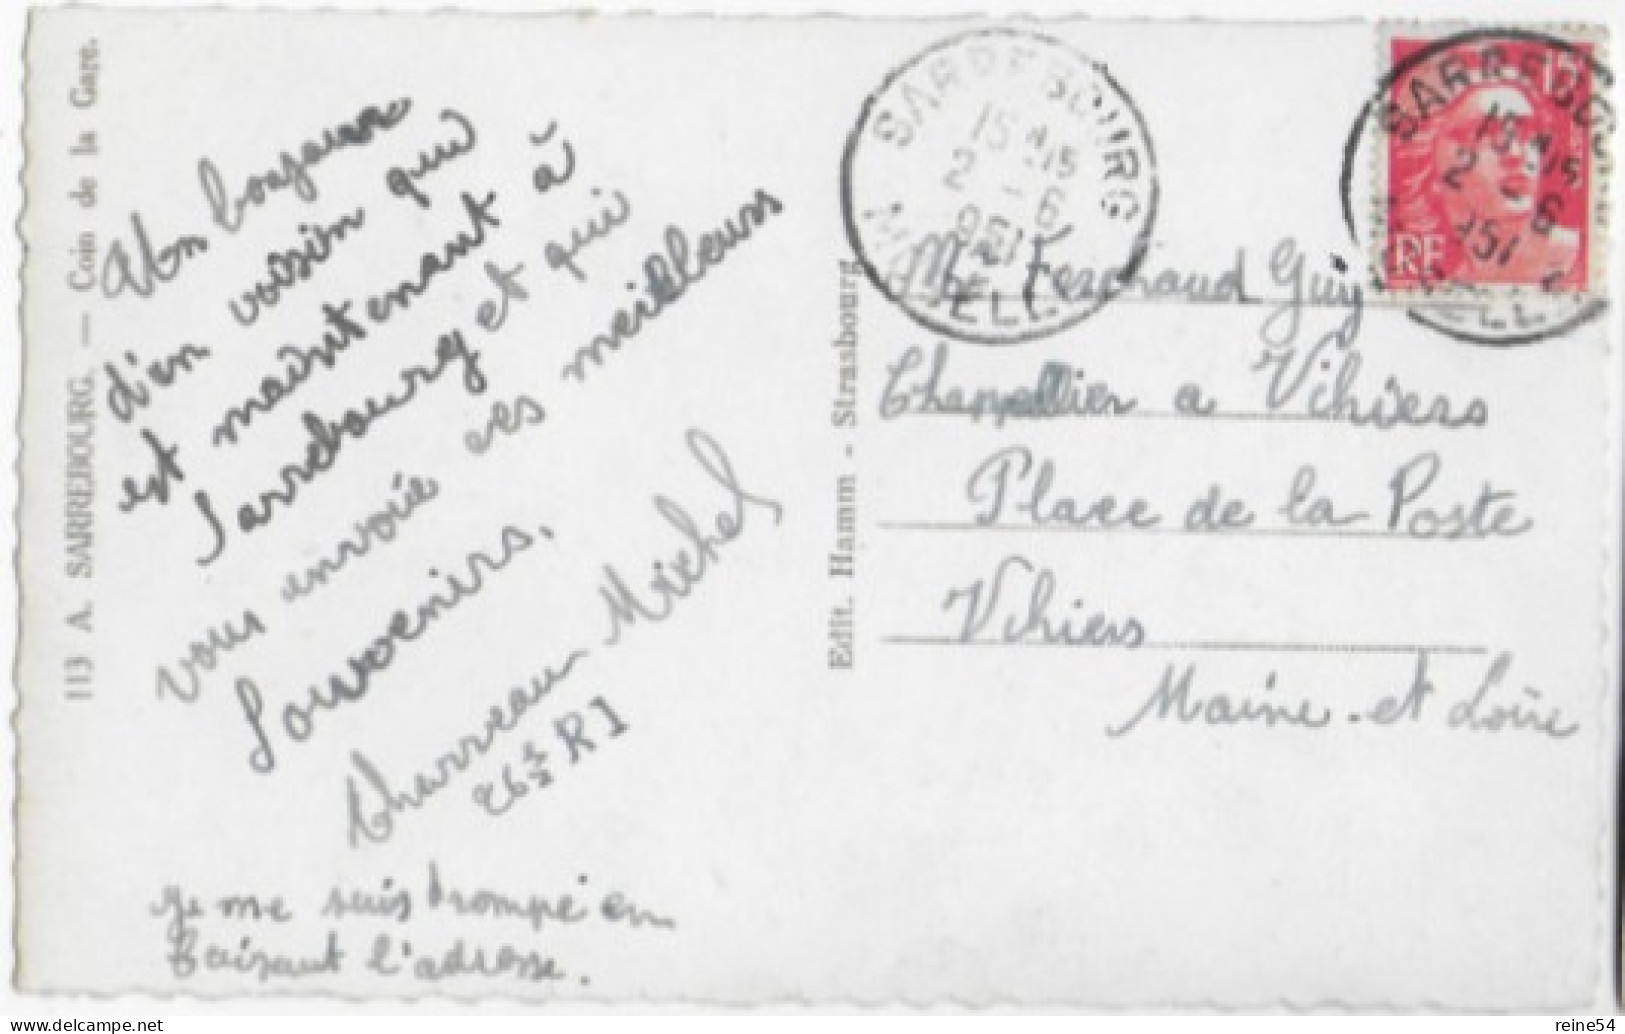 113 A. SARREBOURG. — Coin de la Gare.
Un bonjour
d'en voisin qui
est maintenant à
Sarrebourg et qui
vous envoie ces meilleurs
Souvenirs.
Charreau Michel
26 RI
je me suis trompé en
faisant l'adresse.
Edit. Hamm - Strasbourg
SARREBOURG
15 H 15
2 - 6
1951
MOSELLE
SARREBOURG
15 H 15
2 - 6
1951
15
RF
Mr Ferchaud Guy
Chappellier a Vihiers
Place de la Poste
Vihiers
Maine-et Loire
reine54